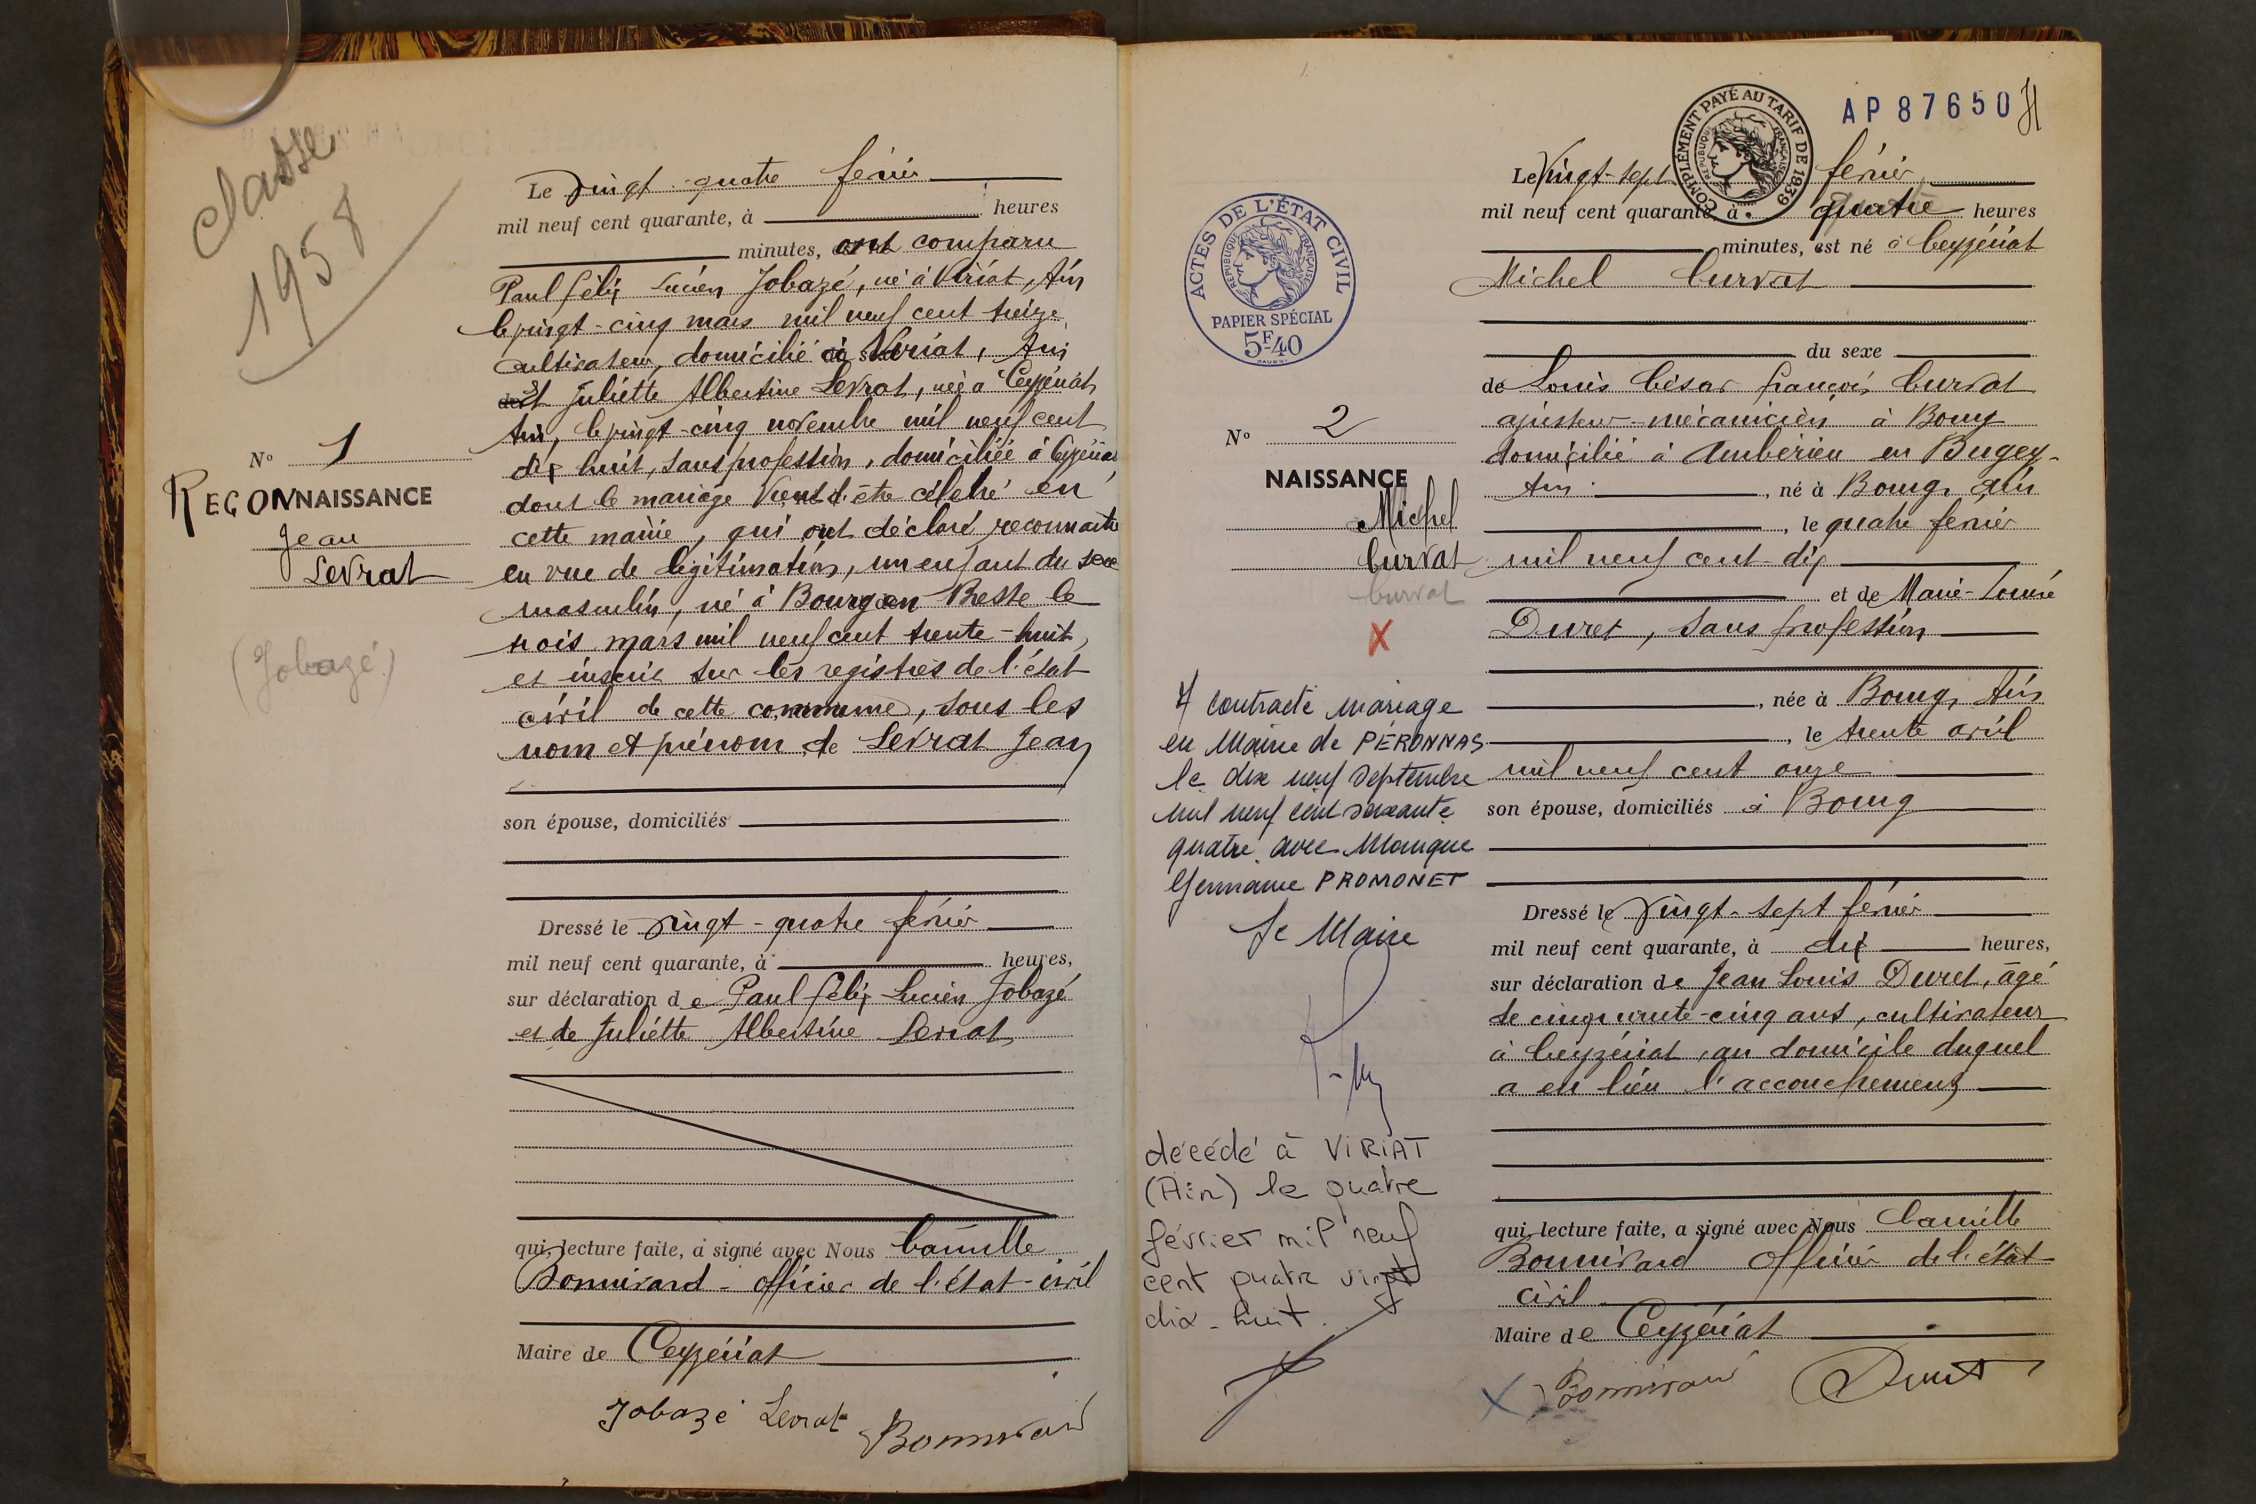 Classe
1958
N° 1
RECONNAISSANCE
Jean
Levrat
(Jobazé)
Le vingt-quatre février
mil neuf cent quarante, à heures
minutes, ont comparu
Paul Félix Lucien Jobazé, né à Viriat, Ain
le vingt-cinq mars mil neuf cent treize
cultivateur, domicilié à Viriat, Ain
et Juliette Albertine Levrat, née à Ceyzériat
Ain, le vingt-cinq novembre mil neuf cent
dix huit, sans profession, domiciliée à Ceyzériat
dont le mariage vient d'être célébré en
cette mairie, qui ont déclaré reconnaître
en vue de légitimation, un enfant du sexe
masculin, né à Bourg en Bresse le
trois mars mil neuf cent trente-huit,
et inscrit sur les registres de l'état
civil de cette commune, sous les
nom et prénom de Levrat Jean
son épouse, domiciliés
Dressé le vingt-quatre février
mil neuf cent quarante, à heures,
sur déclaration de Paul Félix Lucien Jobazé
et de Juliette Albertine Levrat
qui, lecture faite, a signé avec Nous Camille
Bonnivard - officier de l'état-civil
Maire de Ceyzériat
Jobazé Levrat Bonnivard
ACTES DE L'ÉTAT CIVIL
RÉPUBLIQUE FRANÇAISE
PAPIER SPÉCIAL
5F40
N° 2
NAISSANCE
Michel
Curvat
Curvat
X
A contracté mariage
en Mairie de PÉRONNAS
le dix neuf septembre
mil neuf cent soixante
quatre avec Monique
Germaine PROMONET
Le Maire
décédé à VIRIAT
(Ain) le quatre
février mil neuf
cent quatre vingt
dix-huit.
COMPLÉMENT PAYÉ AU TARIF DE 1939
RÉPUBLIQUE FRANÇAISE
AP 87650
Le vingt-sept février
mil neuf cent quarante, à quatre heures
minutes, est né à Ceyzériat
Michel Curvat
du sexe
de Louis César François Curvat
ajusteur-mécanicien à Bourg
domicilié à Ambérieu en Bugey-
Ain, né à Bourg, Ain
, le quatre février
mil neuf cent-dix
et de Marie-Louise
Duret, sans profession
, née à Bourg, Ain
, le trente avril
mil neuf cent onze
son épouse, domiciliés à Bourg
Dressé le vingt-sept février
mil neuf cent quarante, à dix heures,
sur déclaration de Jean Louis Duret, âgé
de cinquante-cinq ans, cultivateur
à Ceyzériat, au domicile duquel
a eu lieu l'accouchement
qui, lecture faite, a signé avec Nous Camille
Bonnivard officier de l'état
civil
Maire de Ceyzériat
X Bonnivard Duret